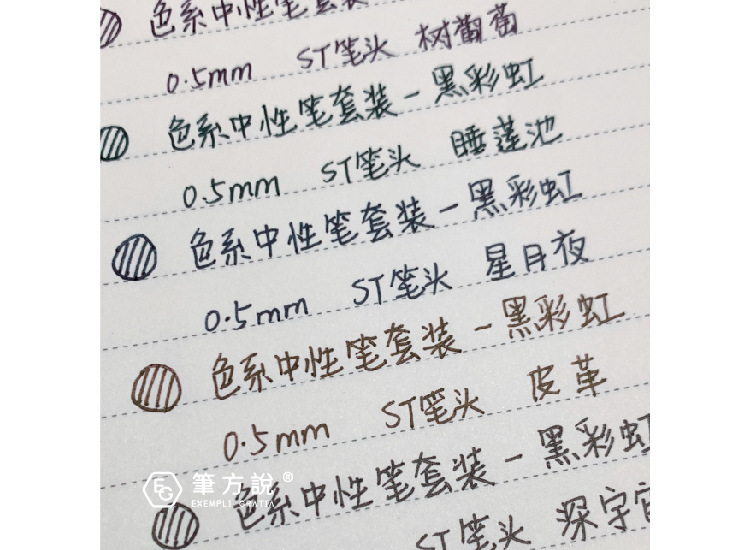 色系中性笔套装
0.5mm ST笔头 树葡萄
色系中性笔套装-黑彩虹
0.5mm ST笔头 睡莲池
色系中性笔套装-黑彩虹
0.5mm ST笔头 星月夜
色系中性笔套装-黑彩虹
0.5mm ST笔头 皮革
色系中性笔套装-黑彩虹
ST笔头 深宇宙
EG 筆方說®
EXEMPLI GRATIA